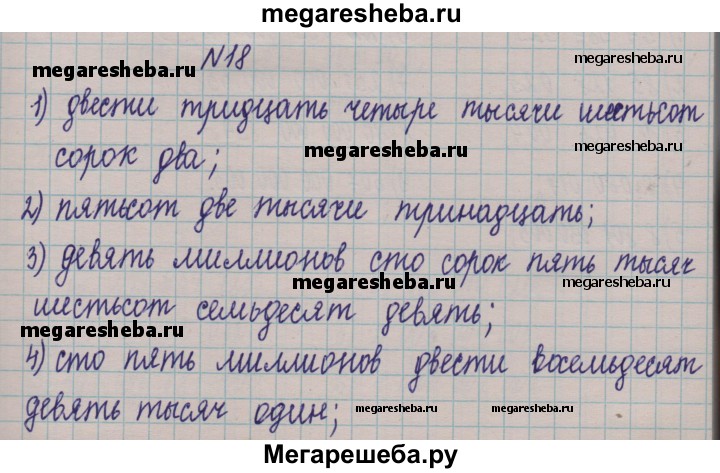 megaresheba.ru
№18
megaresheba.ru
megaresheba.ru
1) двести тридцать четыре тысячи шестьсот
megaresheba.ru
megaresheba.ru
сорок два;
2) пятьсот две тысячи тринадцать;
3) девять миллионов сто сорок пять тысяч
megaresheba.ru
megaresheba.ru
шестьсот семьдесят девять;
megaresheba.ru
4) сто пять миллионов двести восемьдесят
девять тысяч один;
megaresheba.ru
megaresheba.ru
megaresheba.ru
Мегарешеба.ру